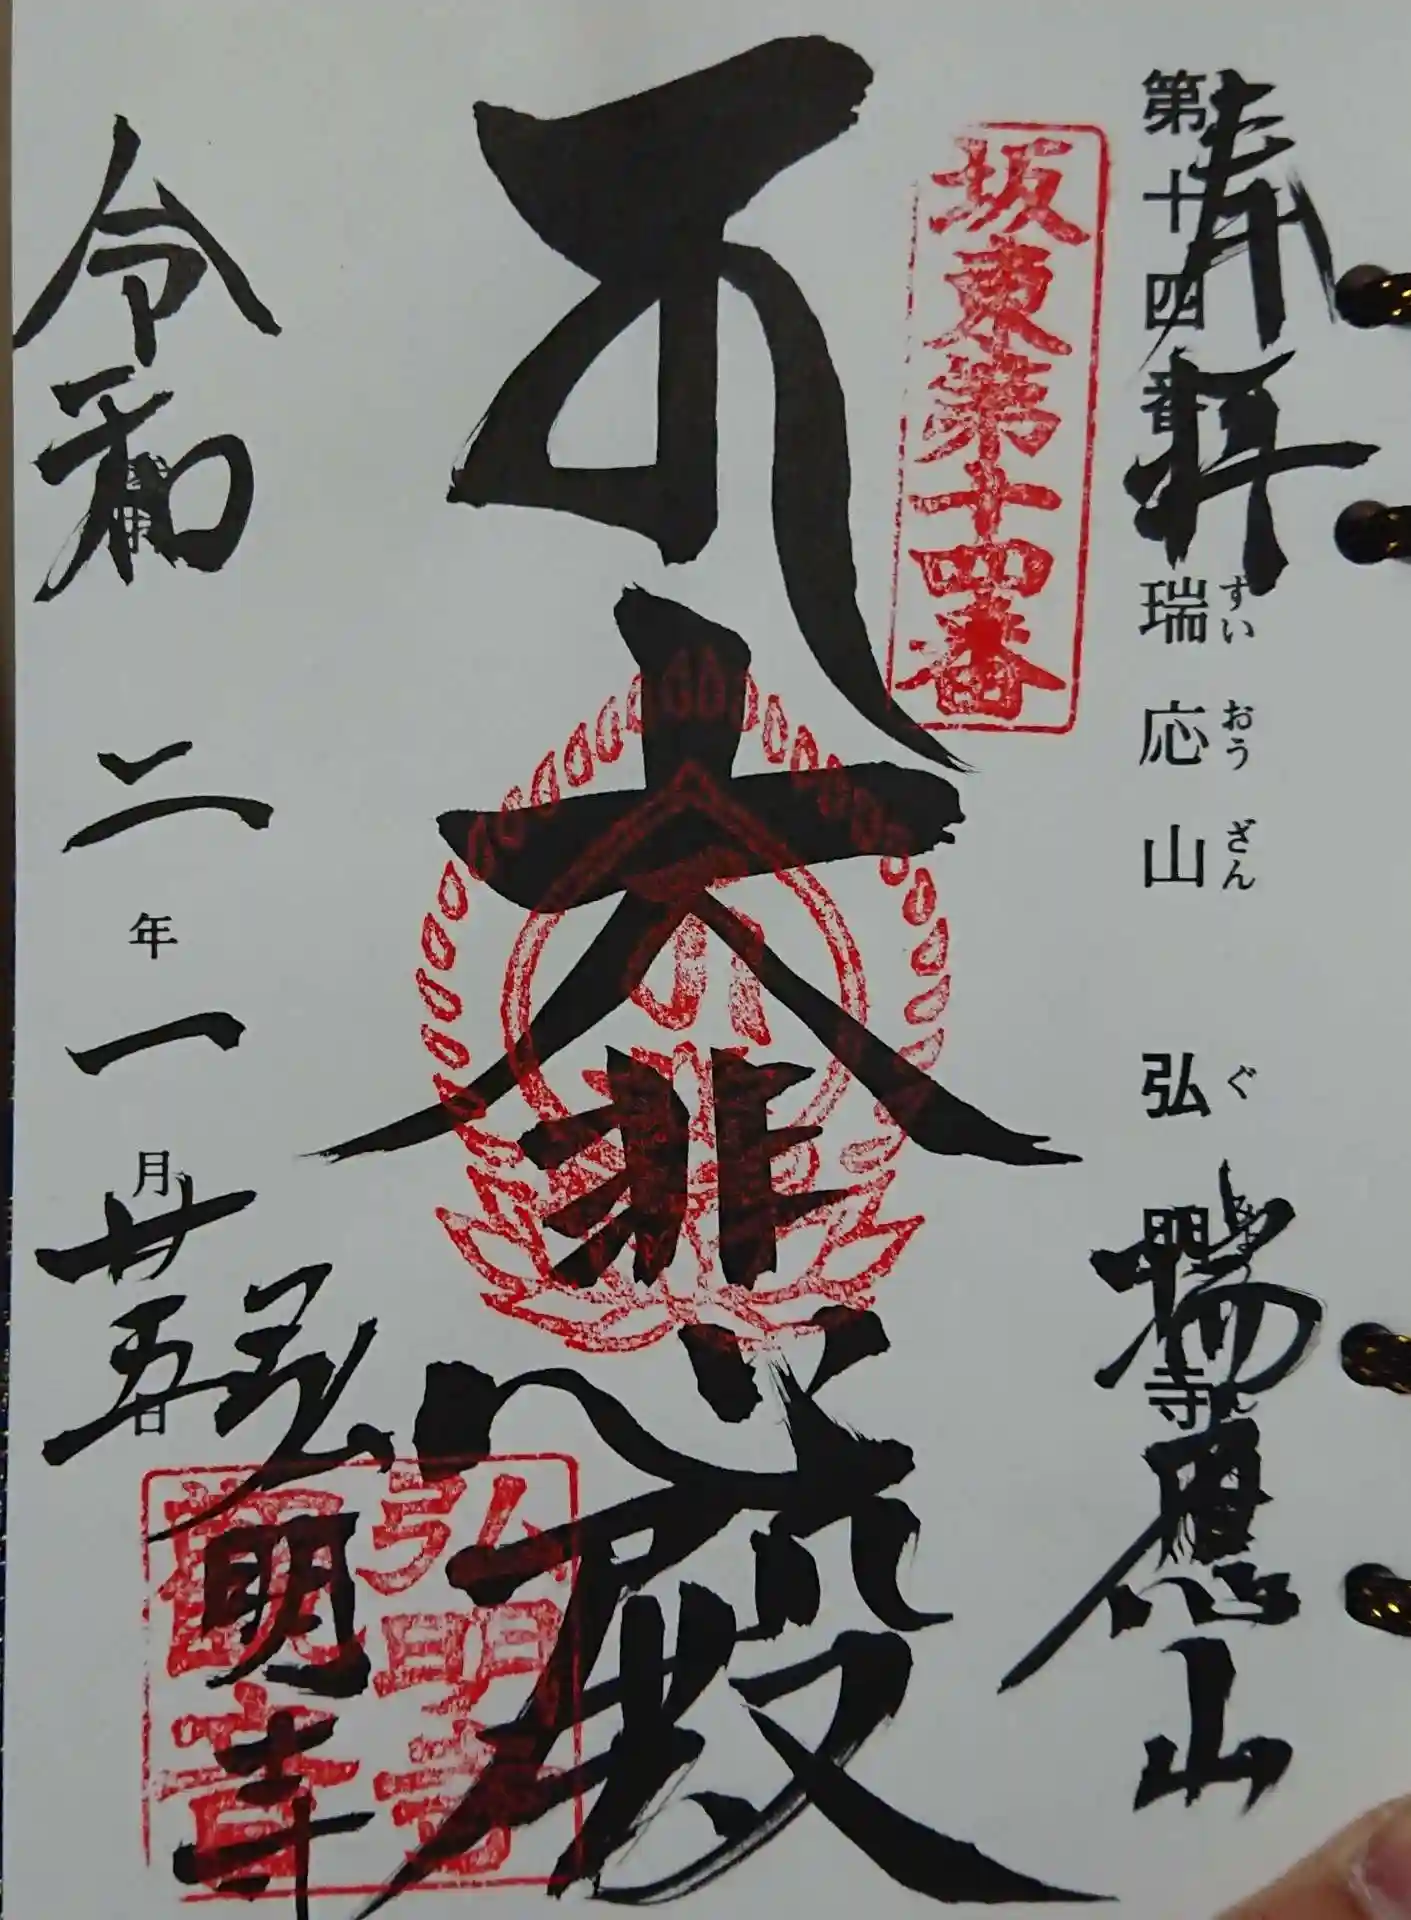 奉拝
第十四番 瑞応山 弘明寺
すいおうざん ぐ
瑞應山
坂東第十四番
大悲殿
弘明寺
観音
弘明寺
令和二年一月廿五日